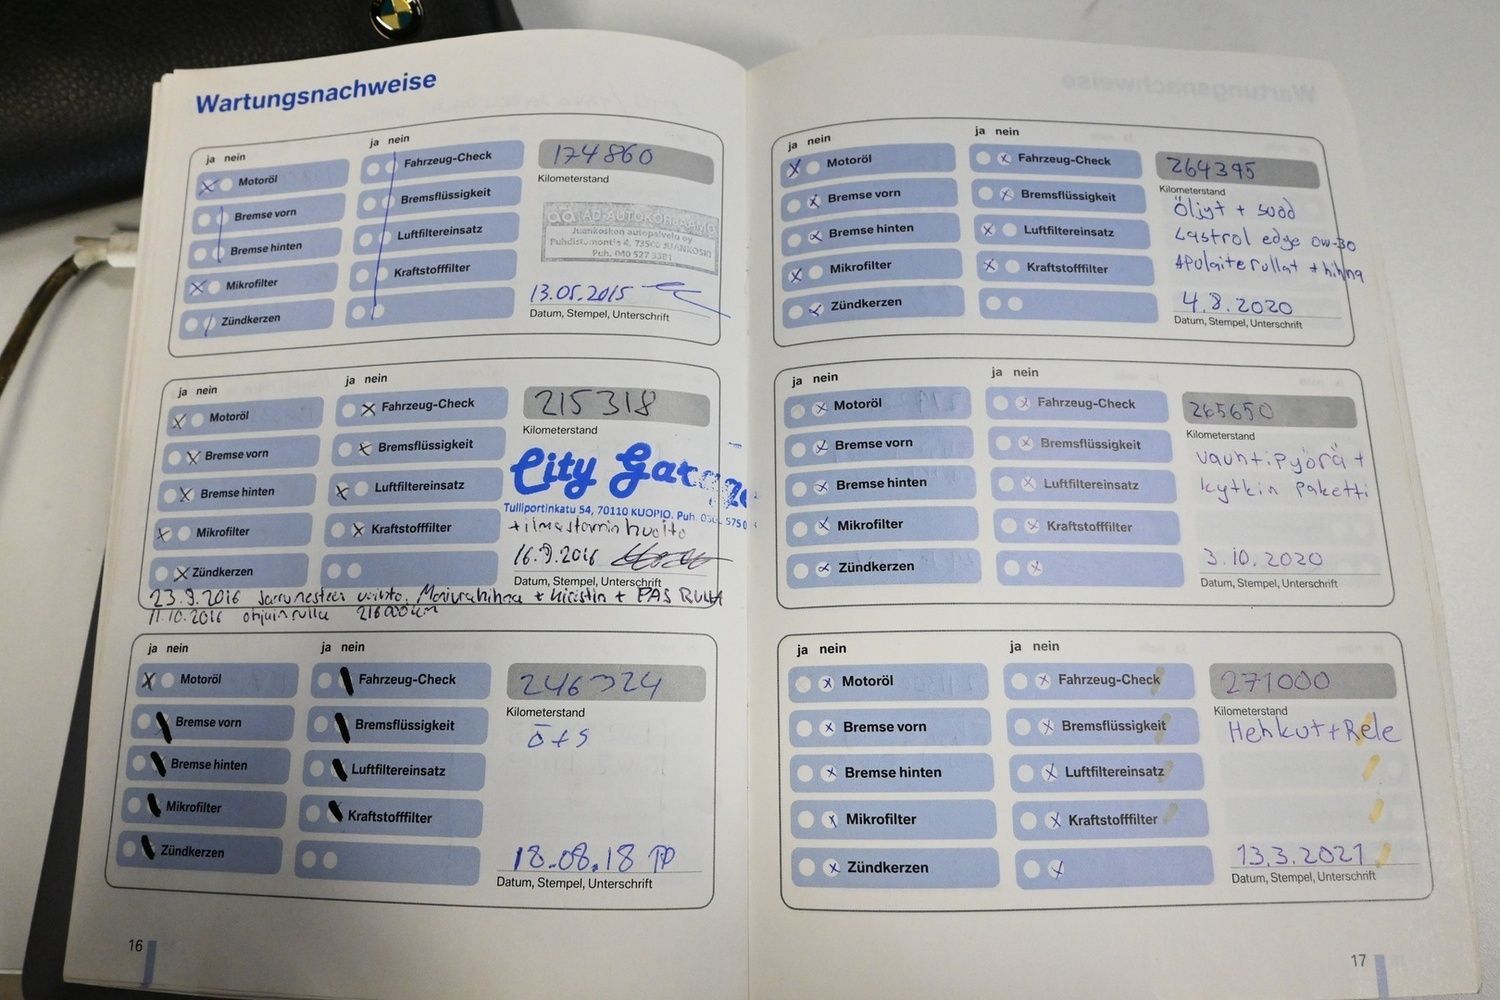 Wartungsnachweise
ja nein
Motoröl
Bremse vorn
Bremse hinten
Mikrofilter
Zündkerzen
ja nein
Fahrzeug-Check
Bremsflüssigkeit
Luftfiltereinsatz
Kraftstofffilter
174860
Kilometerstand
AD-AUTOKORJAAMO
Juankosken autopalvelu oy
Puhdistamontie 4, 73500 JUANKOSKI
Puh. 040 527 3381
13.05.2015
Datum, Stempel, Unterschrift
ja nein
Motoröl
Bremse vorn
Bremse hinten
Mikrofilter
Zündkerzen
ja nein
Fahrzeug-Check
Bremsflüssigkeit
Luftfiltereinsatz
Kraftstofffilter
215318
Kilometerstand
City Garage
Tulliportinkatu 54, 70110 KUOPIO. Puh.
+ ilmastoinnin huolto
16.9.2016
Datum, Stempel, Unterschrift
23.9.2016 Jarrunesteen vaihto, Moniurahihna + kiristin + PAS RULLA
11.10.2016 ohjuinrulla 216000km
ja nein
Motoröl
Bremse vorn
Bremse hinten
Mikrofilter
Zündkerzen
ja nein
Fahrzeug-Check
Bremsflüssigkeit
Luftfiltereinsatz
Kraftstofffilter
246324
Kilometerstand
Ö+S
18.08.18 PP
Datum, Stempel, Unterschrift
16
ja nein
Motoröl
Bremse vorn
Bremse hinten
Mikrofilter
Zündkerzen
ja nein
Fahrzeug-Check
Bremsflüssigkeit
Luftfiltereinsatz
Kraftstofffilter
264395
Kilometerstand
Öljyt + suod
Castrol edge 0w-30
Apulaiterullat + hihna
4.8.2020
Datum, Stempel, Unterschrift
ja nein
Motoröl
Bremse vorn
Bremse hinten
Mikrofilter
Zündkerzen
ja nein
Fahrzeug-Check
Bremsflüssigkeit
Luftfiltereinsatz
Kraftstofffilter
265650
Kilometerstand
vauhtipyörä +
kytkin paketti
3.10.2020
Datum, Stempel, Unterschrift
ja nein
Motoröl
Bremse vorn
Bremse hinten
Mikrofilter
Zündkerzen
ja nein
Fahrzeug-Check
Bremsflüssigkeit
Luftfiltereinsatz
Kraftstofffilter
271000
Kilometerstand
Hehkut + Rele
13.3.2021
Datum, Stempel, Unterschrift
17